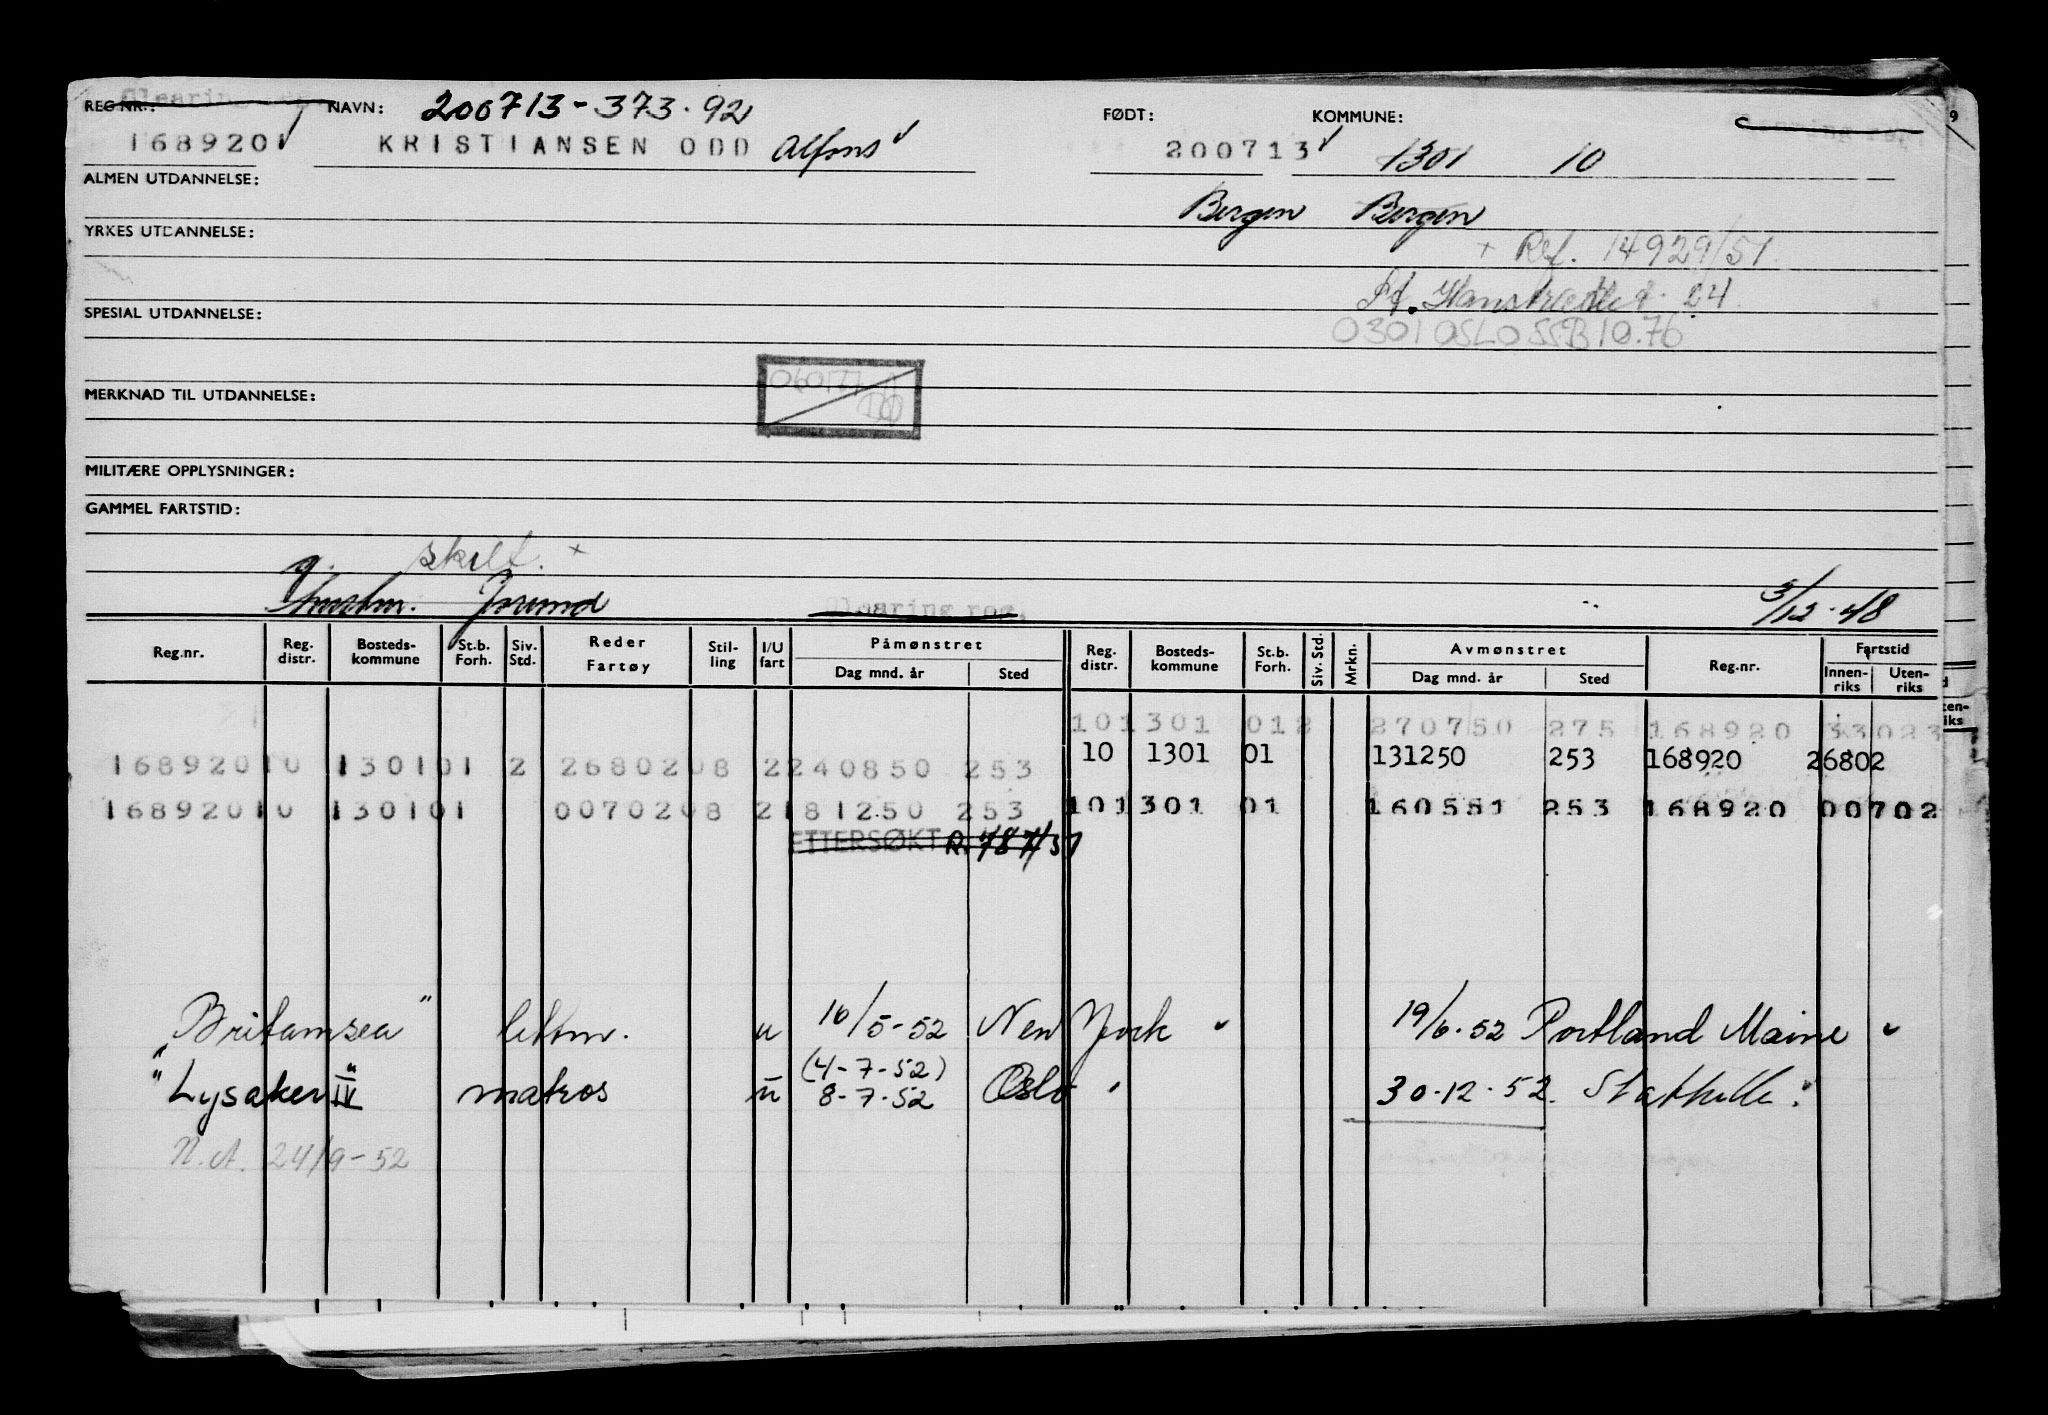 REG NR.: NAVN: 200713-373.92 FØDT: KOMMUNE:
1689201 KRISTIANSEN ODD Alfons 200713 1301 10
ALMEN UTDANNELSE:
Bergen Bergen
YRKES UTDANNELSE:
+ Ref. 14929/51
24
SPESIAL UTDANNELSE:
0301 OSLO SSB 10.76
MERKNAD TIL UTDANNELSE:
MILITÆRE OPPLYSNINGER:
GAMMEL FARTSTID:
g. skilt. +
Jorund Clearing reg. 3/12-48
Reg.nr. Reg. distr. Bosteds-kommune St.b. Forh. Siv. Std. Reder Fartøy Stil-ling I/U fart Påmønstret Dag mnd. år Sted Reg. distr. Bosteds-kommune St.b. Forh. Siv. Std. Mrkn. Avmønstret Dag mnd. år Sted Reg.nr. Fartstid Innen-riks Uten-riks
101301 012 270750 275 168920 33023
16892010 130101 2 2680208 2240850 253 10 1301 01 131250 253 168920 26802
16892010 130101 0070208 2181250 253 101301 01 160551 253 168920 00702
ETTERSØKT R. 787/51
"Britamsea" lettm. u 16/5-52 New York 19/6.52 Portland Maine
(4-7-52)
"Lysaker IV" matros u 8-7-52 Oslo 30.12.52. Stathelle
N.A. 24/9-52